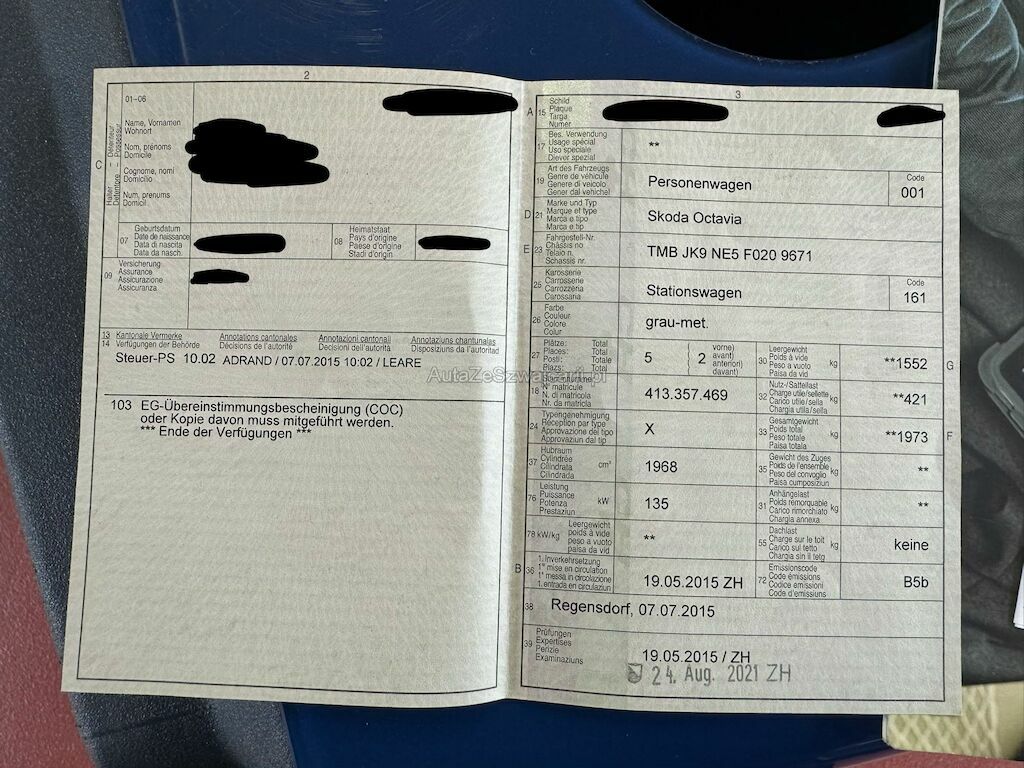 2
01-06
C
Halter – Détenteur
Detentore – Possessur
Name, Vornamen
Wohnort
Nom, prénoms
Domicile
Cognome, nomi
Domicilio
Num, prenums
Domicil
07
Geburtsdatum
Date de naissance
Data di nascita
Data da nasch.
08
Heimatstaat
Pays d'origine
Paese d'origine
Stadi d'origin
09
Versicherung
Assurance
Assicurazione
Assicuranza
13 Kantonale Vermerke
14 Verfügungen der Behörde
Annotations cantonales
Décisions de l'autorité
Annotazioni cantonali
Decisioni dell'autorità
Annotaziuns chantunalas
Disposiziuns da l'autoritad
Steuer-PS 10.02 ADRAND / 07.07.2015 10:02 / LEARE
103 EG-Übereinstimmungsbescheinigung (COC)
oder Kopie davon muss mitgeführt werden.
*** Ende der Verfügungen ***
3
A 15
Schild
Plaque
Targa
Numer
17
Bes. Verwendung
Usage spécial
Uso speciale
Diever spezial
**
19
Art des Fahrzeugs
Genre de véhicule
Genere di veicolo
Gener dal vehichel
Personenwagen
Code
001
D 21
Marke und Typ
Marque et type
Marca e tipo
Marca e tip
Skoda Octavia
E 23
Fahrgestell-Nr.
Châssis no
Telaio n.
Schassis nr.
TMB JK9 NE5 F020 9671
25
Karosserie
Carrosserie
Carrozzeria
Carossaria
Stationswagen
Code
161
26
Farbe
Couleur
Colore
Colur
grau-met.
27
Plätze: Total
Places: Total
Posti: Totale
Plazs: Total
5
2
vorne)
avant)
anteriori)
davant)
30
Leergewicht
Poids à vide
Peso a vuoto
Paisa da vid
kg
**1552
G
18
N° matricule
N. di matricola
Nr. da matricla
413.357.469
32
Nutz-/Sattellast
Charge utile/sellette
Carico utile/sella
Chargia utila/sella
kg
**421
24
Typengenehmigung
Réception par type
Approvazione del tipo
Approvaziun dal tip
X
33
Gesamtgewicht
Poids total
Peso totale
Paisa totala
kg
**1973
F
37
Hubraum
Cylindrée
Cilindrata
Cilindrada
cm³
1968
35
Gewicht des Zuges
Poids de l'ensemble
Peso del convoglio
Paisa cumposiziun
kg
**
76
Leistung
Puissance
Potenza
Prestaziun
kW
135
31
Anhängelast
Poids remorquable
Carico rimorchiato
Chargia annexa
kg
**
78 kW/kg
Leergewicht
poids à vide
peso a vuoto
paisa da vid
**
55
Dachlast
Charge sur le toit
Carico sul tetto
Chargia sin il tetg
kg
keine
B 36
1. Inverkehrsetzung
1re mise en circulation
1a messa in circolazione
1. entrada en circulaziun
19.05.2015 ZH
72
Emissionscode
Code émissions
Codice emissioni
Code d'emissiuns
B5b
38
Regensdorf, 07.07.2015
39
Prüfungen
Expertises
Perizie
Examinaziuns
19.05.2015 / ZH
24. Aug. 2021 ZH
AutaZeSzwajcarii.pl